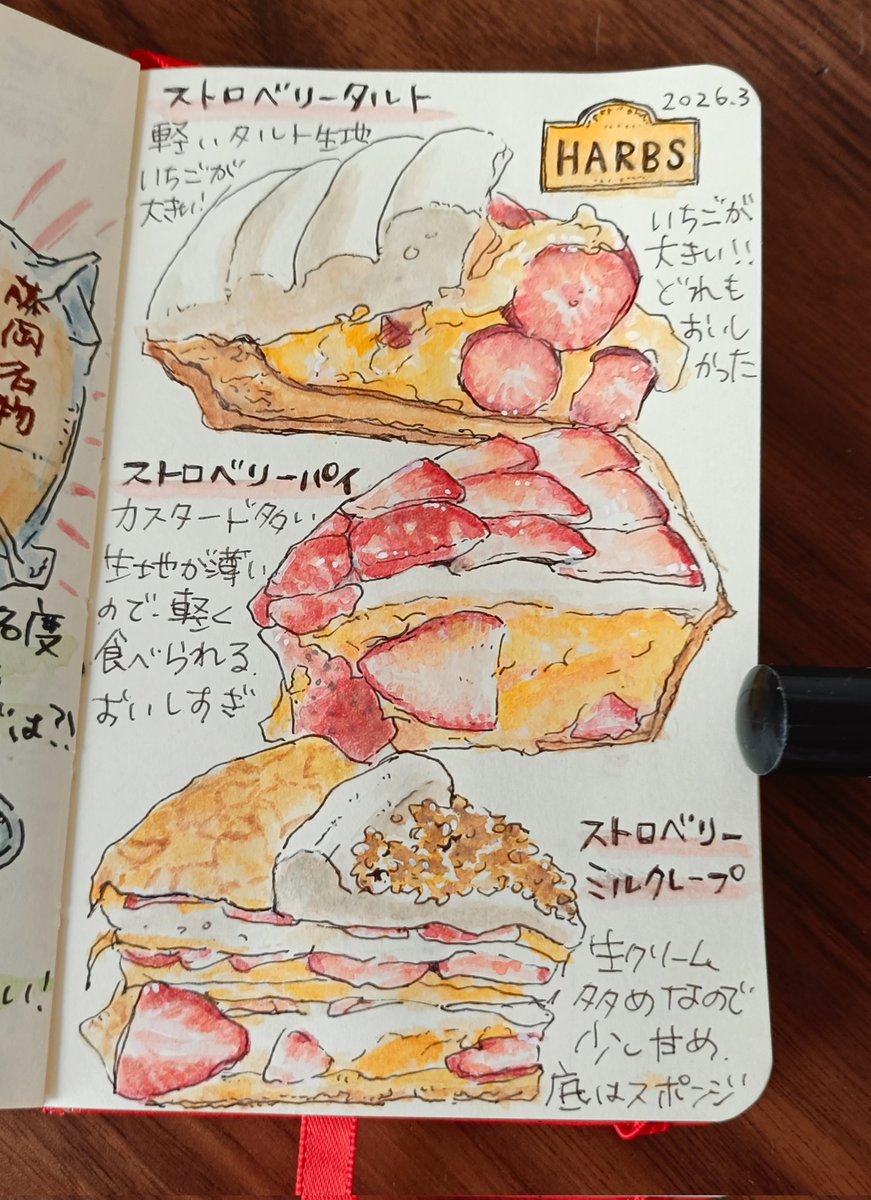 ストロベリータルト
軽いタルト生地
いちごが
大きい!
2026.3
HARBS
いちごが
大きい!!
どれも
おいし
かった
ストロベリーパイ
カスタード多い
生地が薄い
ので軽く
食べられる.
おいしすぎ
ストロベリー
ミルクレープ
生クリーム
多めなので
少し甘め.
底はスポンジ
藤岡名物
名度
では?!
い!